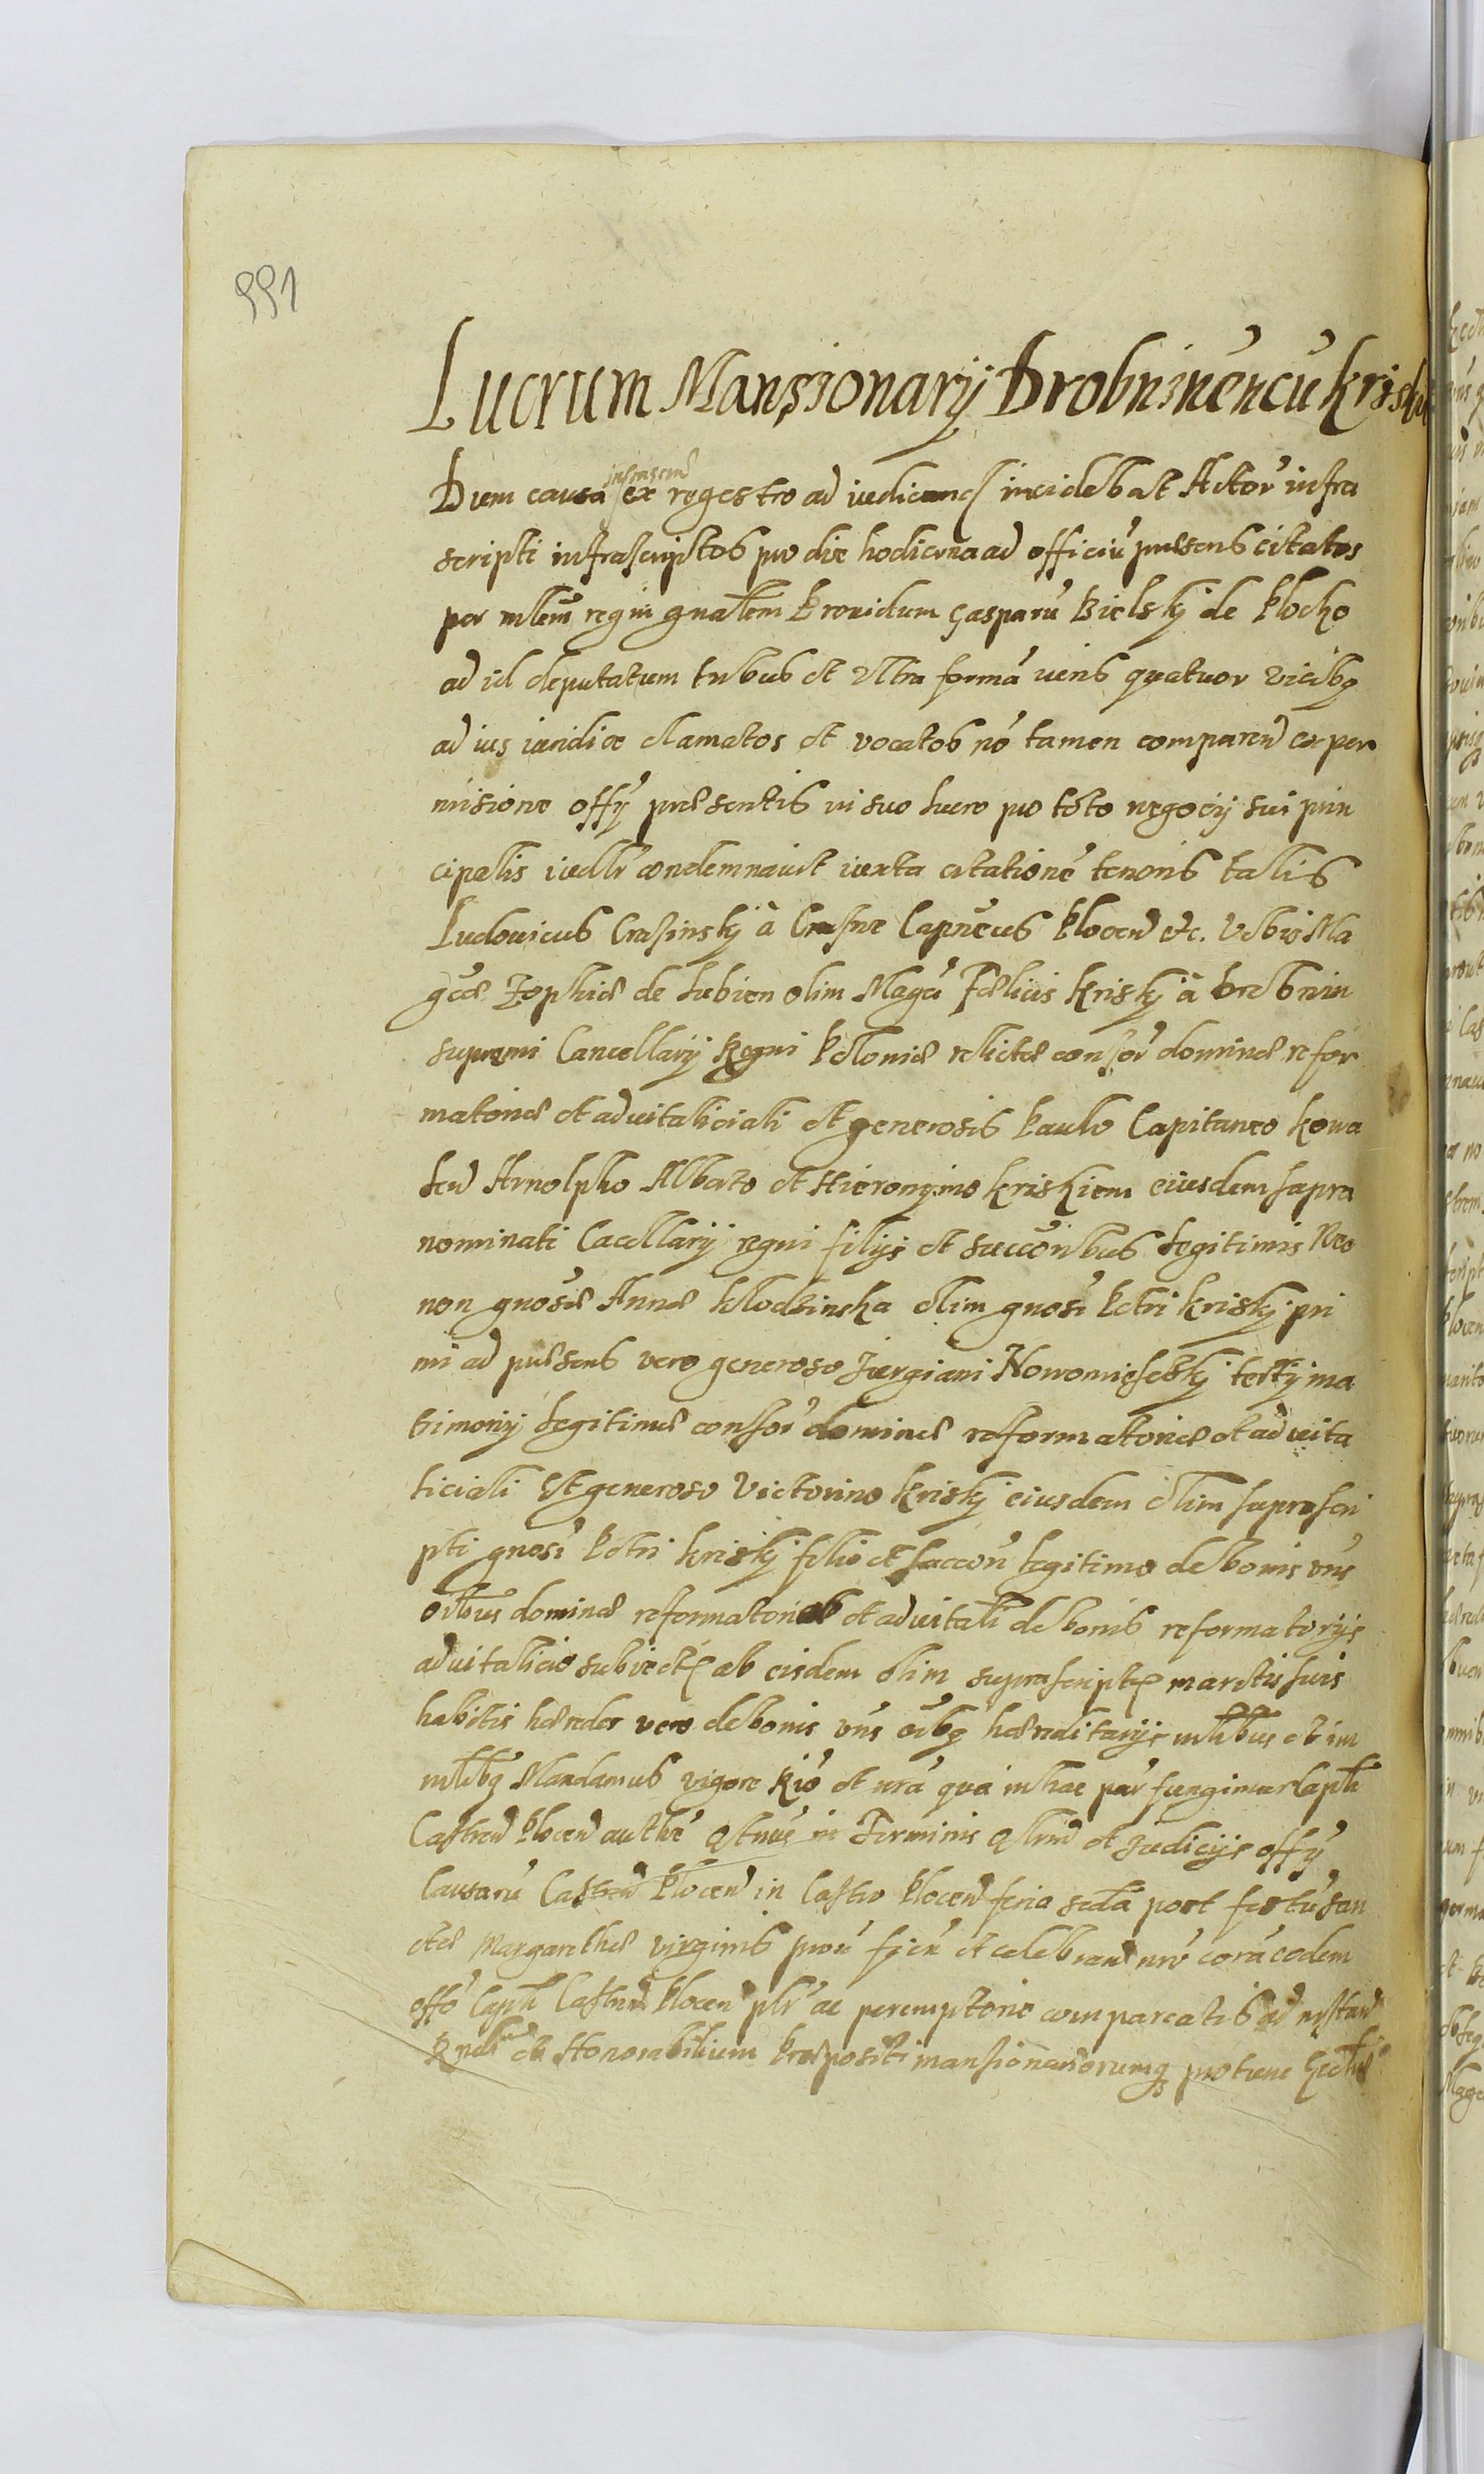 991
Lucrum Mansionarij Drobninen cū krisk
Dum causa infrascr ex regestro ad iudicand incidebat Actor infra
scripti infrascriptos pro die hodierna ad officiū praesens citatos
per mlem regni gnalem Providum Gasparū Bielskj de Plocko
ad id deputatum tribus et ultra formā iuris quatuor vicibq
ad ius iuridice clamatos et vocatos nō tamen comparen ex per
misione offy praesentis in suo lucro pro toto negocij sui prin
cipalis iudlr condemnavit iuxta citationē tenoris talis
Ludovicus Crasinskj à Crasne Capneus Plocen etc. Vobis Ma
gcae Zophiae de Lubien olim Magci Faelicis Kriskj à Drobnin
supremi Cancellarij Regni Poloniae relictae consor dominae refor
matoriae et advitaliciali et generosis Paulo Capitaneo Kowa
len Arnolpho Alberto et Hieronymo Kriskiem eiusdem supra
nominati Cacellarij regni filijs et succoribus legitimis Nec
non gnosae Annae Klodzinska olim gnosi Petri Kriskj pri
mi ad praesens vero generoso Jurgiani Nowomieskj tertij ma
trimonij legitimae consor dominae reformatoriae et advita
liciali Et generoso Victorino Kriskj eiusdem olim suprascri
pti gnosi Petri Kriskj filio et succori legitimo de bonis vris
oibus dominae reformatoriae et advitali de bonis reformatorijs
advitalicio subiectis ab eisdem olim suprascriptis maritis suis
habitis haeredes vero de bonis vris oibq haereditarijs mlibus et im
mlibq Mandamus vigore Rio et nrā qua in hac par fungimur Capli
Castren Plocen authē qtnus in Terminis qlrnd et Judicijs offy
Causarū Castren Plocen in Castro Plocen feria scda post festū san
ctae Margarethae virginis prox fycn et celebrand nro corā eodem
offo Capli Castren Plocen plr ac peremptorie compareatis ad instan
Rndi et Honorabilium Praepositi mansionariorumq protunc Ecclae